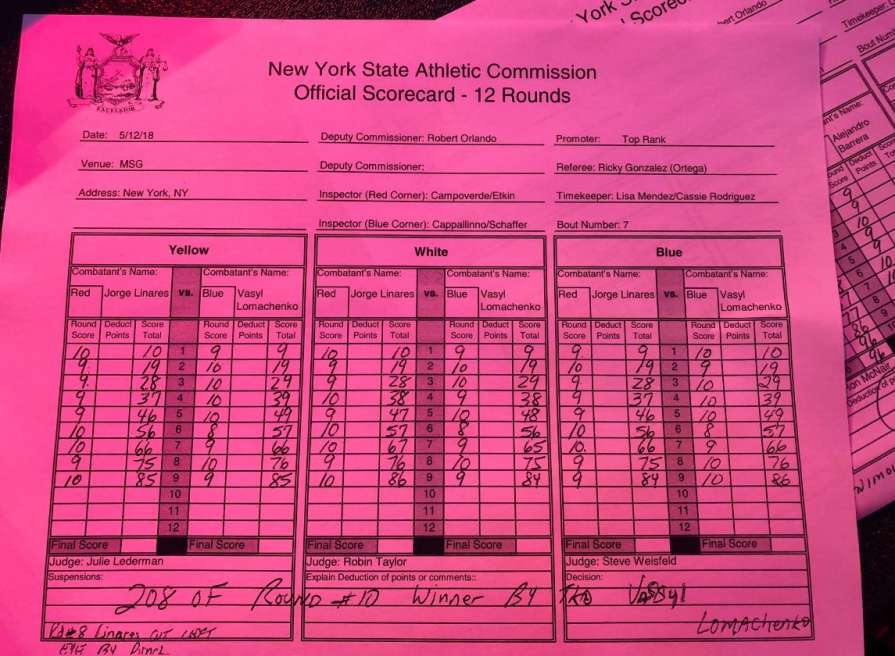 York
Scorec
ert Orlando
Timekeeper:
Bout Num
EXCELSIOR
New York State Athletic Commission
Official Scorecard - 12 Rounds
Date: 5/12/18 Deputy Commissioner: Robert Orlando Promoter: Top Rank
Venue: MSG Deputy Commissioner: Referee: Ricky Gonzalez (Ortega)
Address: New York, NY Inspector (Red Corner): Campoverde/Etkin Timekeeper: Lisa Mendez/Cassie Rodriguez
Inspector (Blue Corner): Cappallinno/Schaffer Bout Number: 7
Yellow White Blue
Combatant's Name: Combatant's Name: Combatant's Name: Combatant's Name: Combatant's Name: Combatant's Name:
Red Jorge Linares vs. Blue Vasyl Lomachenko Red Jorge Linares vs. Blue Vasyl Lomachenko Red Jorge Linares vs. Blue Vasyl Lomachenko
Round Score Deduct Points Score Total Round Score Deduct Points Score Total Round Score Deduct Points Score Total Round Score Deduct Points Score Total Round Score Deduct Points Score Total Round Score Deduct Points Score Total
10 10 1 9 9 10 10 1 9 9 9 9 1 10 10
9 19 2 10 19 9 19 2 10 19 10 19 2 9 19
9 28 3 10 29 9 28 3 10 29 9 28 3 10 29
9 37 4 10 39 10 38 4 9 38 9 37 4 10 39
9 46 5 10 49 9 47 5 10 48 9 46 5 10 49
10 56 6 8 57 10 57 6 8 56 10 56 6 8 57
10 66 7 9 66 10 67 7 9 65 10 66 7 9 66
9 75 8 10 76 9 76 8 10 75 9 75 8 10 76
10 85 9 9 85 10 86 9 9 84 9 84 9 10 86
10 10 10
11 11 11
12 12 12
Final Score Final Score Final Score Final Score Final Score Final Score
Judge: Julie Lederman Judge: Robin Taylor Judge: Steve Weisfeld
Suspensions: Explain Deduction of points or comments:: Decision:
208 OF ROUND #10 Winner By TKO Vasyl
LOMAChenko
Rd#8 Linares CUT LEFT
EYE BY Punch
Alejandro
Barrera